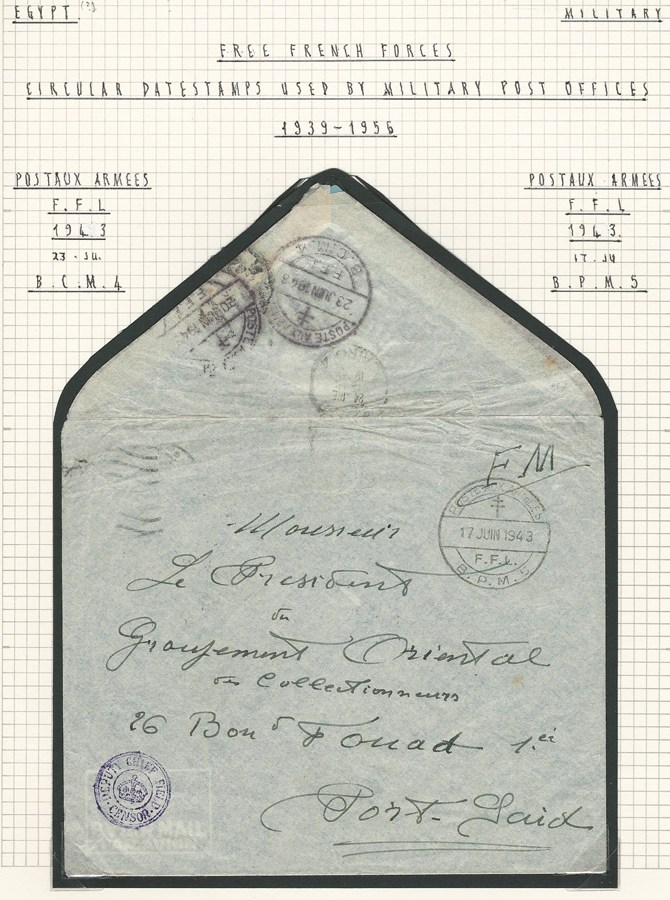 EGYPT (?)
MILITARY
FREE FRENCH FORCES
CIRCULAR DATESTAMPS USED BY MILITARY POST OFFICES
1939-1956
POSTAUX ARMEES
F.F.L
1943
23 · JU.
B.C.M.4
POSTAUX ARMEES
F.F.L
1943.
17. JU
B.P.M.5
B.C.M. 4
F.F.L.
23 JUIN 1943
POSTE AUX
20 JUIN 194
POSTE
FM
POSTES AUX ARMEES
17 JUIN 1943
F.F.L.
B.P.M. 5
Monsieur
Le President
du
Groupement Oriental
des Collectionneurs
26 Bould Fouad 1er
Port-Said
DEPUTY CHIEF FIELD CENSOR